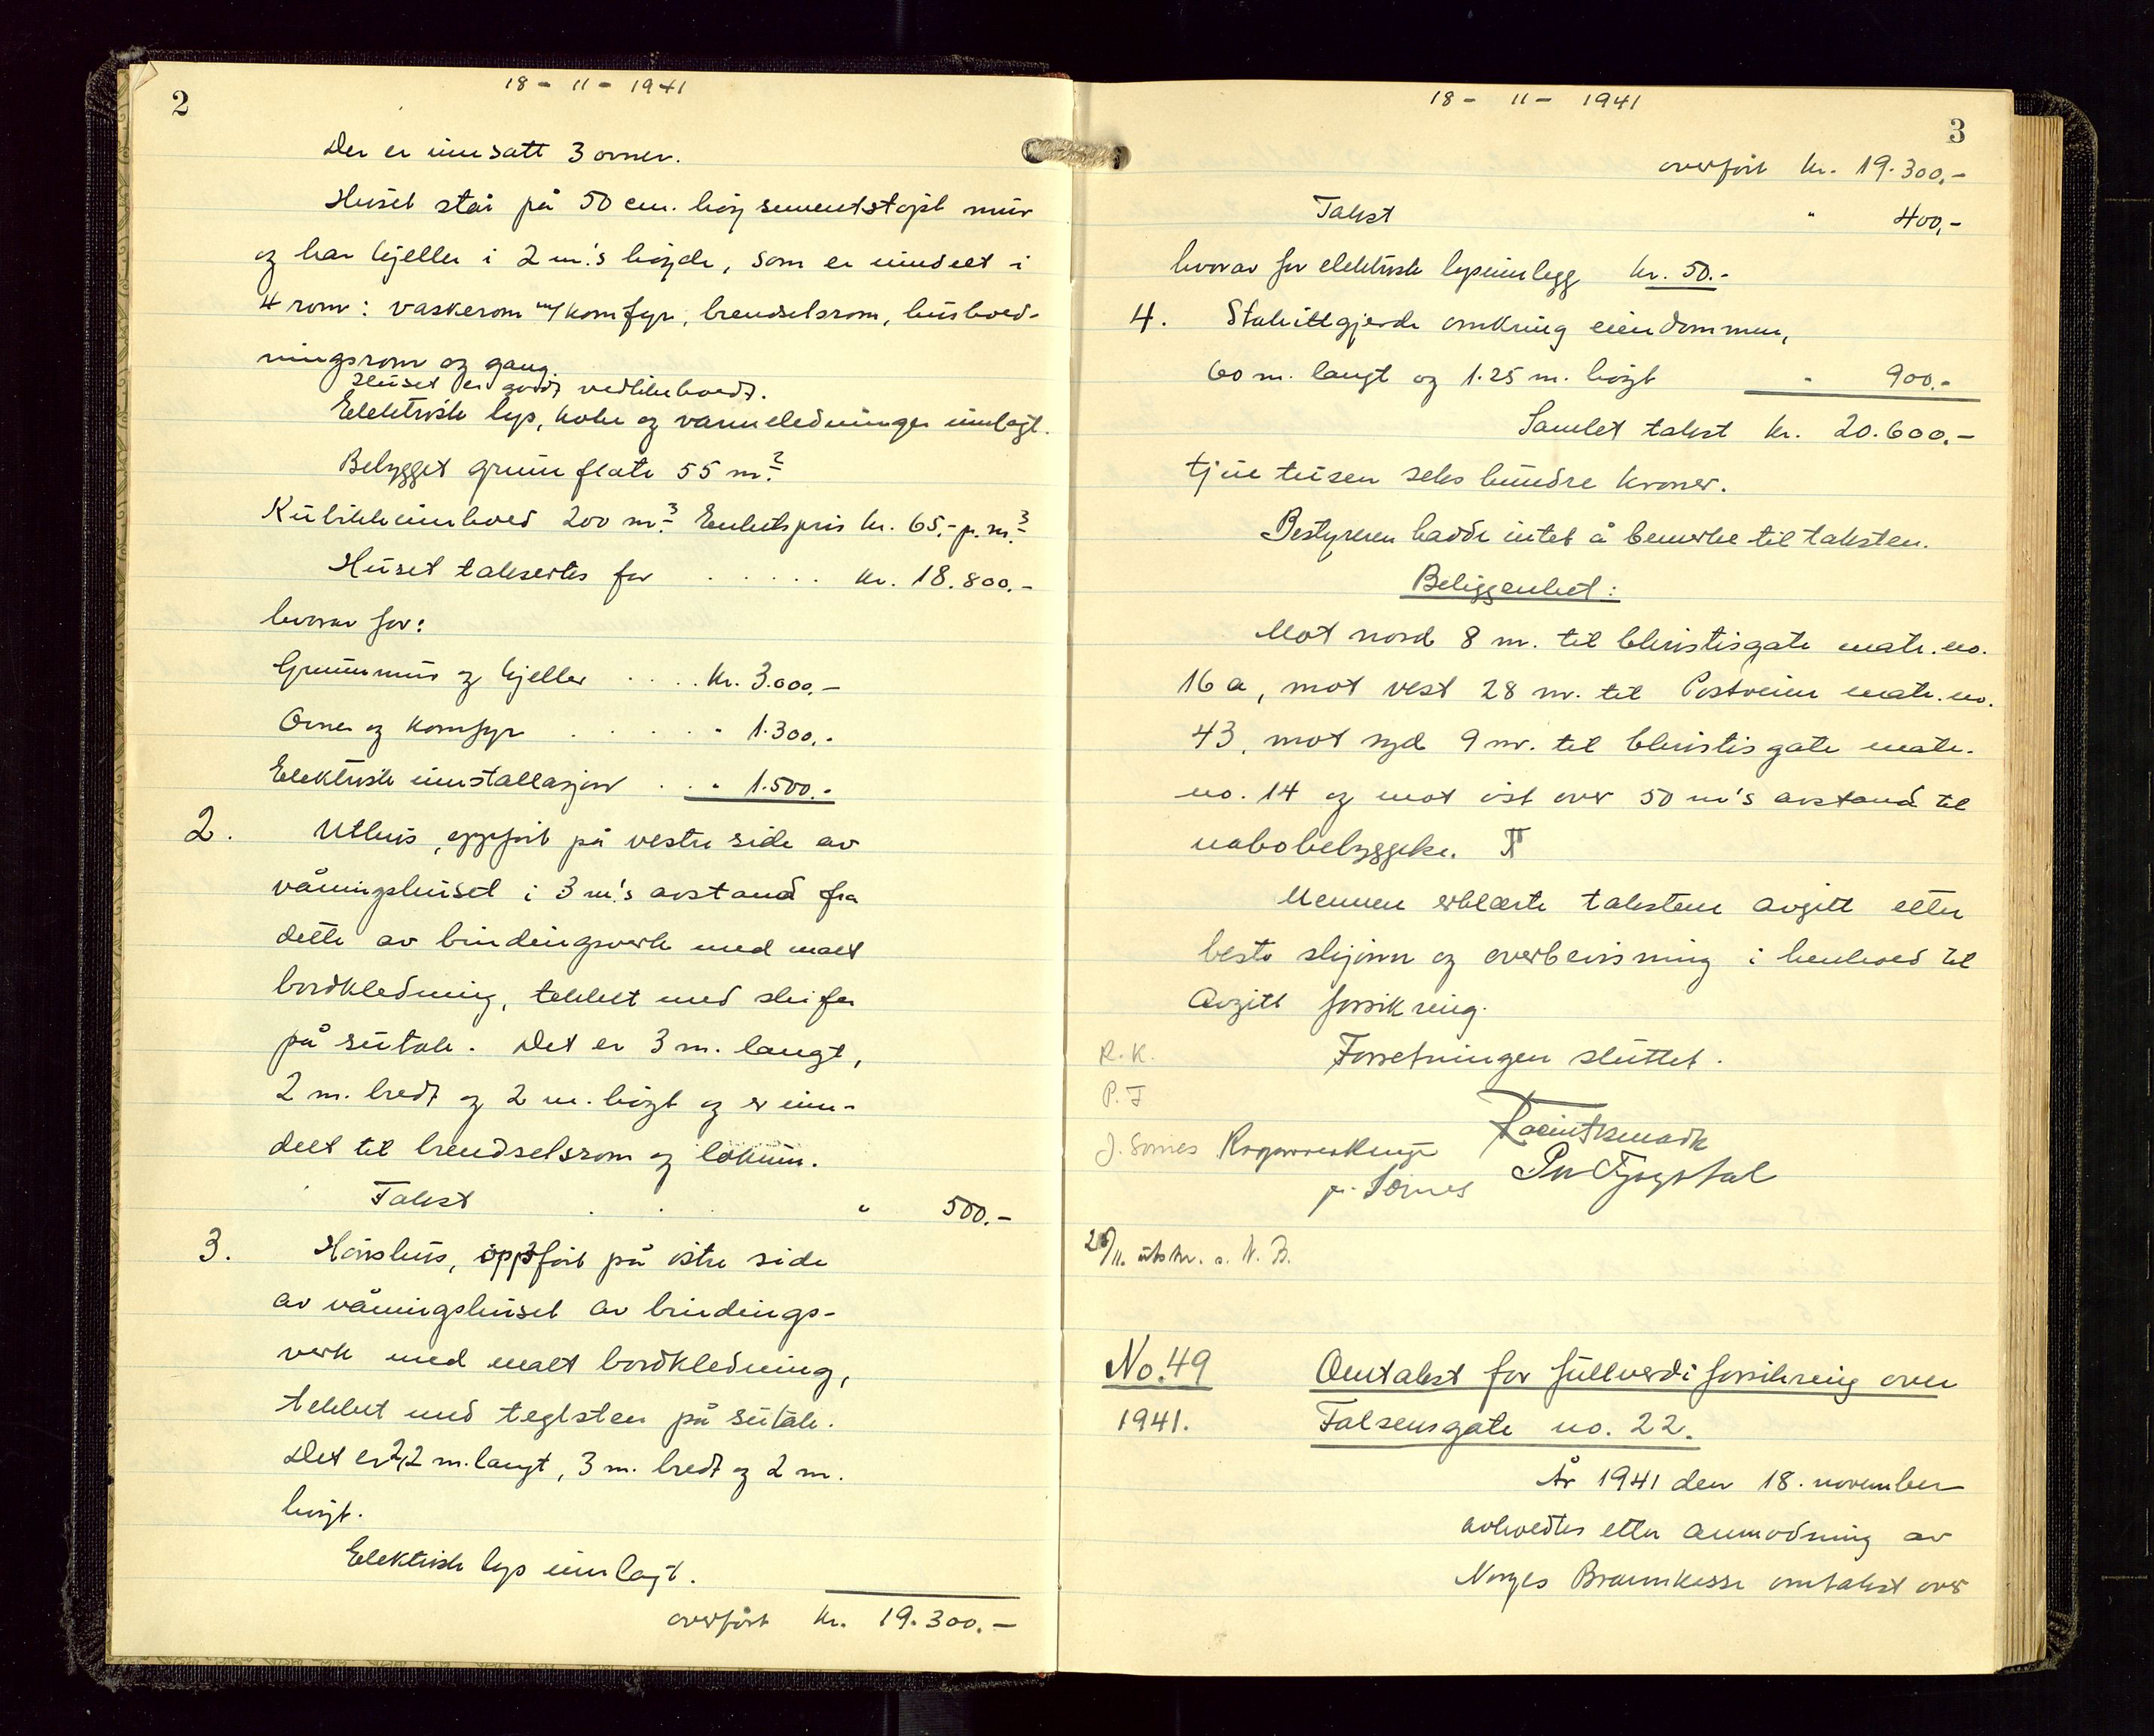 2
18 - 11 - 1941
Der er innsatt 3 ovner.
Huset står på 50 cm. høy sementstøpt mur
og har kjeller i 2 m.'s høyde, som er inndelt i
4 rom: vaskerom m/komfyr, brendselsrom, hushold-
ningsrom og gang.
Huset er godt vedlikeholdt.
Elektrisk lys, koke og varmeledninger innlagt.
Bebygget grunnflate 55 m.²
Kubikkinnhold 200 m.³ Enhetspris kr. 65,- p. m.³
Huset takseres for . . . . . kr. 18.800.-
hvorav for:
Grunnmur og kjeller . . . . kr. 3.000.-
Ovner og komfyr . . . . . " 1.300.-
Elektrisk innstallasjon . . " 1.500.-
2. Uthus, oppført på vestre side av
våningshuset i 3 m.'s avstand fra
dette av bindingsverk med malt
bordkledning, tekket med skifer
på sutak. Det er 3 m. langt,
2 m. bredt og 2 m. høyt og er inn-
delt til brendselsrom og lokum.
Takst . . " 500.-
3. Hønshus, oppført på østre side
av våningshuset av bindings-
verk med malt bordkledning,
tekket med teglsten på sutak.
Det er 2,2 m. langt, 3 m. bredt og 2 m.
høyt.
Elektrisk lys innlagt.
overført kr. 19.300.-
18 - 11 - 1941
3
overført kr. 19.300.-
Takst " 400,-
hvorav for elektrisk lysinnlegg kr. 50.-
4. Stakittgjerde omkring eiendommen,
60 m. langt og 1.25 m. høyt " 900.-
Samlet takst kr. 20.600.-
tjue tusen seks hundre kroner.
Bestyreren hadde intet å bemerke til taksten.
Beliggenhet:
Mot nord 8 m. til Christisgate matr. no.
16 a, mot vest 28 m. til Postveien matr. no.
43, mot syd 9 m. til Christisgate matr.
no. 14 og mot øst over 50 m's avstand til
nabobebyggelse. II
Mennene erklærte taksten avgitt etter
beste skjønn og overbevisning i henhold til
avgitt forsikring.
Forretningen sluttet.
R. K.
P. F
J. Sømes
p. Sømes
/11. utskr. s. N. B.
No. 49
1941.
Omtakst for fullverdiforsikring over
Falsensgate no. 22.
År 1941 den 18. november
avholdtes etter anmodning av
Norges Brannkasse omtakst over